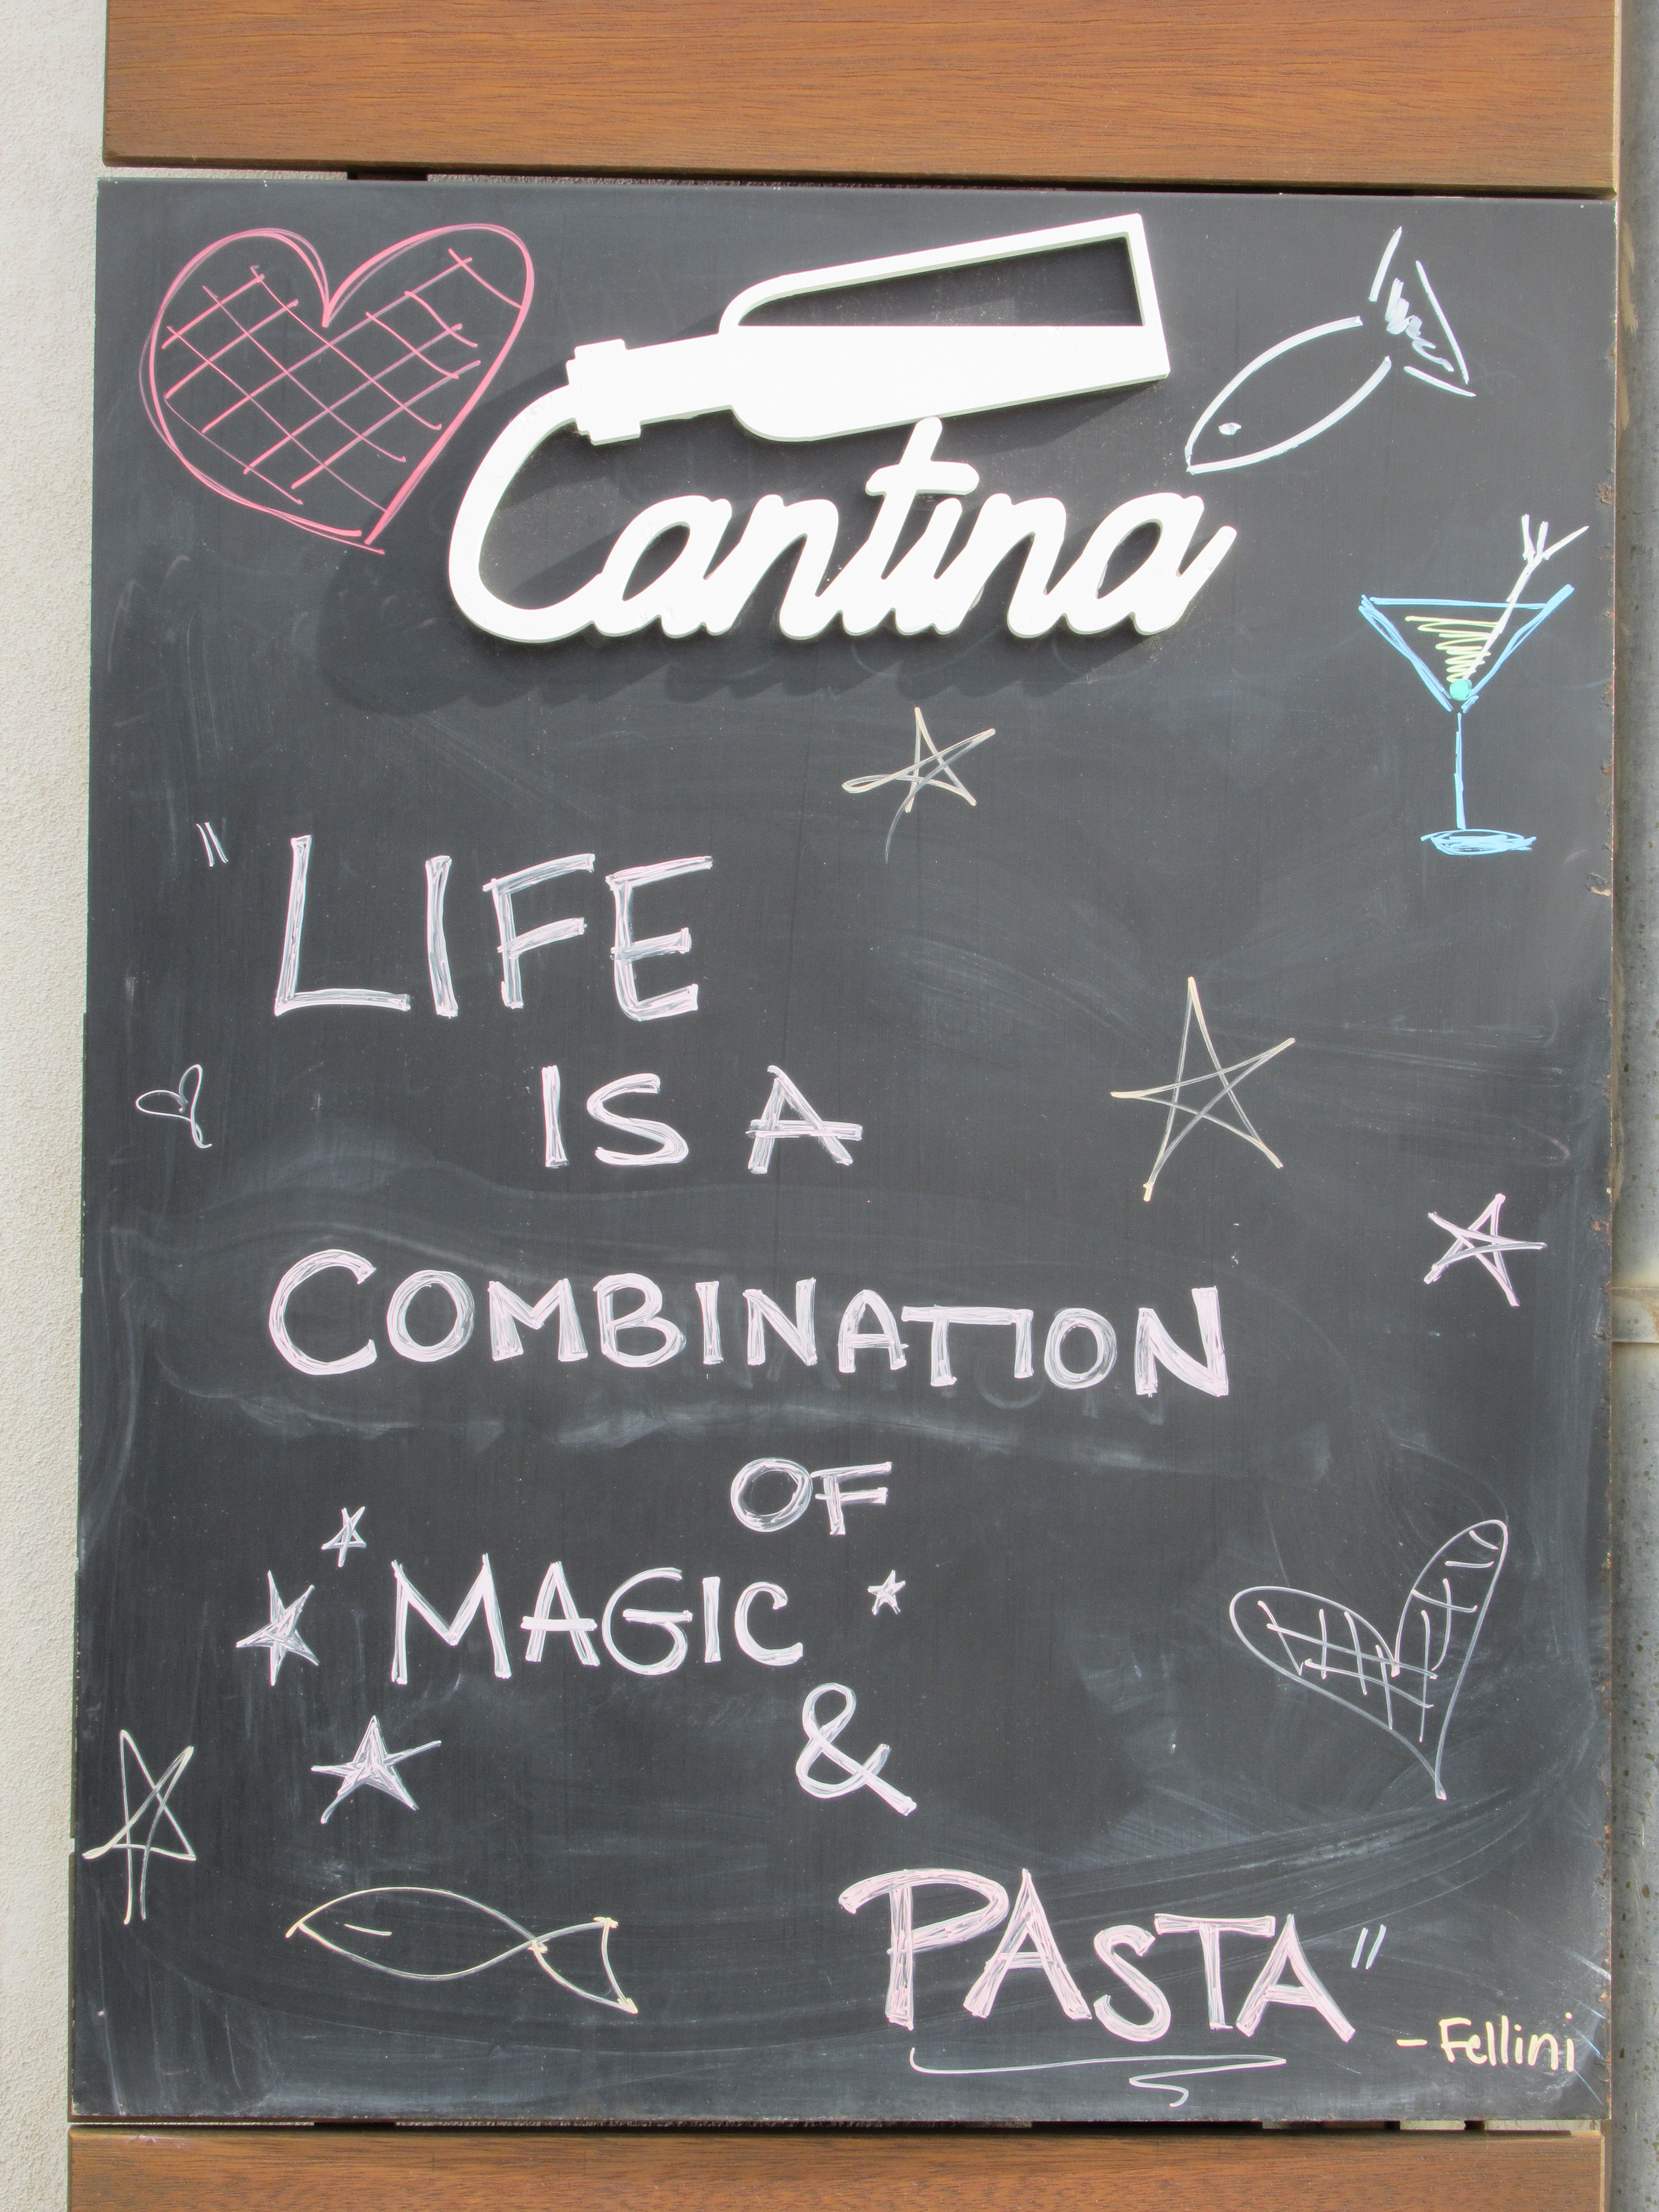 Cantina
"LIFE
IS A
COMBINATION
OF
MAGIC
&
PASTA"
-Fellini